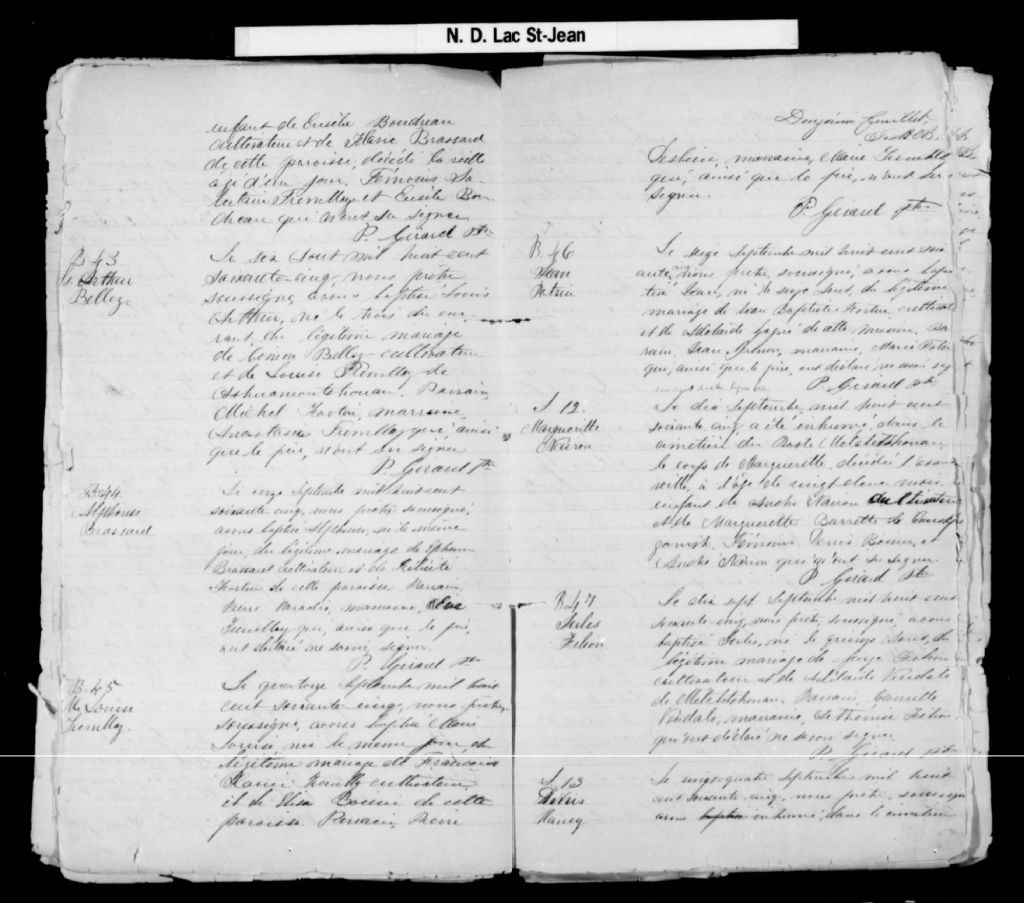 N. D. Lac St-Jean
enfant de Eusèbe Boudreau
cultivateur et de Marie Brassard
de cette paroisse, décédé la veille
âgé d'un jour. Témoins
Tremblay et Eusèbe Bou-
dreau qui n'ont su signer.
P. Girard Ptre
B 43
Ls Arthur
Belley.
Le six Aout mil huit cent
soixante-cinq, nous prêtre
soussigné avons baptisé Louis
Arthur, né le trois du cou-
rant, du légitime mariage
de Belley cultivateur
et de Louise Tremblay de
Parrain,
Michel Fortin, marraine,
Anastasie Tremblay qui ainsi
que le père, n'ont su signer
P. Girard Ptre
B. 44
Alphonse
Brassard
Le onze Septembre mil huit cent
soixante cinq, nous prêtre soussigné,
avons baptisé Alphonse, né le même
jour, du légitime mariage de Ephrem
Brassard cultivateur et de Félicité
Fortin de cette paroisse. Parrain
Pierre Paradis, marraine,
Tremblay qui, ainsi que le père,
ont déclaré ne savoir signer.
P. Girard Ptre
B. 45
Me Louise
Tremblay.
Le quatorze Septembre mil huit
cent soixante cinq, nous prêtre
soussigné, avons baptisé Marie
Louise née le même jour du
légitime mariage de François
Tremblay cultivateur
et de Elisa de cette
paroisse. Parrain, Pierre
Douzième feuillet.
marraine, Marie Tremblay
qui, ainsi que le père, n'ont su
signer.
P. Girard Ptre
B. 46
Jean
Fortin
Le seize Septembre mil huit cent soix
ante cinq nous prêtre, soussigné, avons bap
tisé Jean, né le du légitime
mariage de Jean Baptiste Fortin, cultivateur
et de Adelaide Gagné de cette mission. Par
rain, Jean marraine, Marie
qui, ainsi que le père, ont déclaré ne savoir sig
P. Girard Ptre
S 12.
Marguerite
Naison
Le dix Septembre, mil huit cent
soixante cinq, a été inhumé, dans le
cimetière du Poste Metabetchouan,
le corps de Marguerite, décédée l'avant
veille, à l'âge de vingt deux mois,
enfant de André cultivateur
et de Marguerite Barrette de
Témoins Denis et
André qui n'ont su signer.
P. Girard Ptre
B 47
Jules
Filion
Le dix sept Septembre mil huit cent
soixante cinq, nous prêtre, soussigné, avons
baptisé Jules, né le quinze du
légitime mariage de Filion
cultivateur et de Adélaide
de Metabetchouan. Parrain, Camille
marraine, Filion
qui ont déclaré ne savoir signer
P. Girard Ptre
S 13
Le vingt-quatre Septembre mil huit
cent soixante cinq, nous prêtre, soussigné
avons baptisé inhumé, dans le cimetière